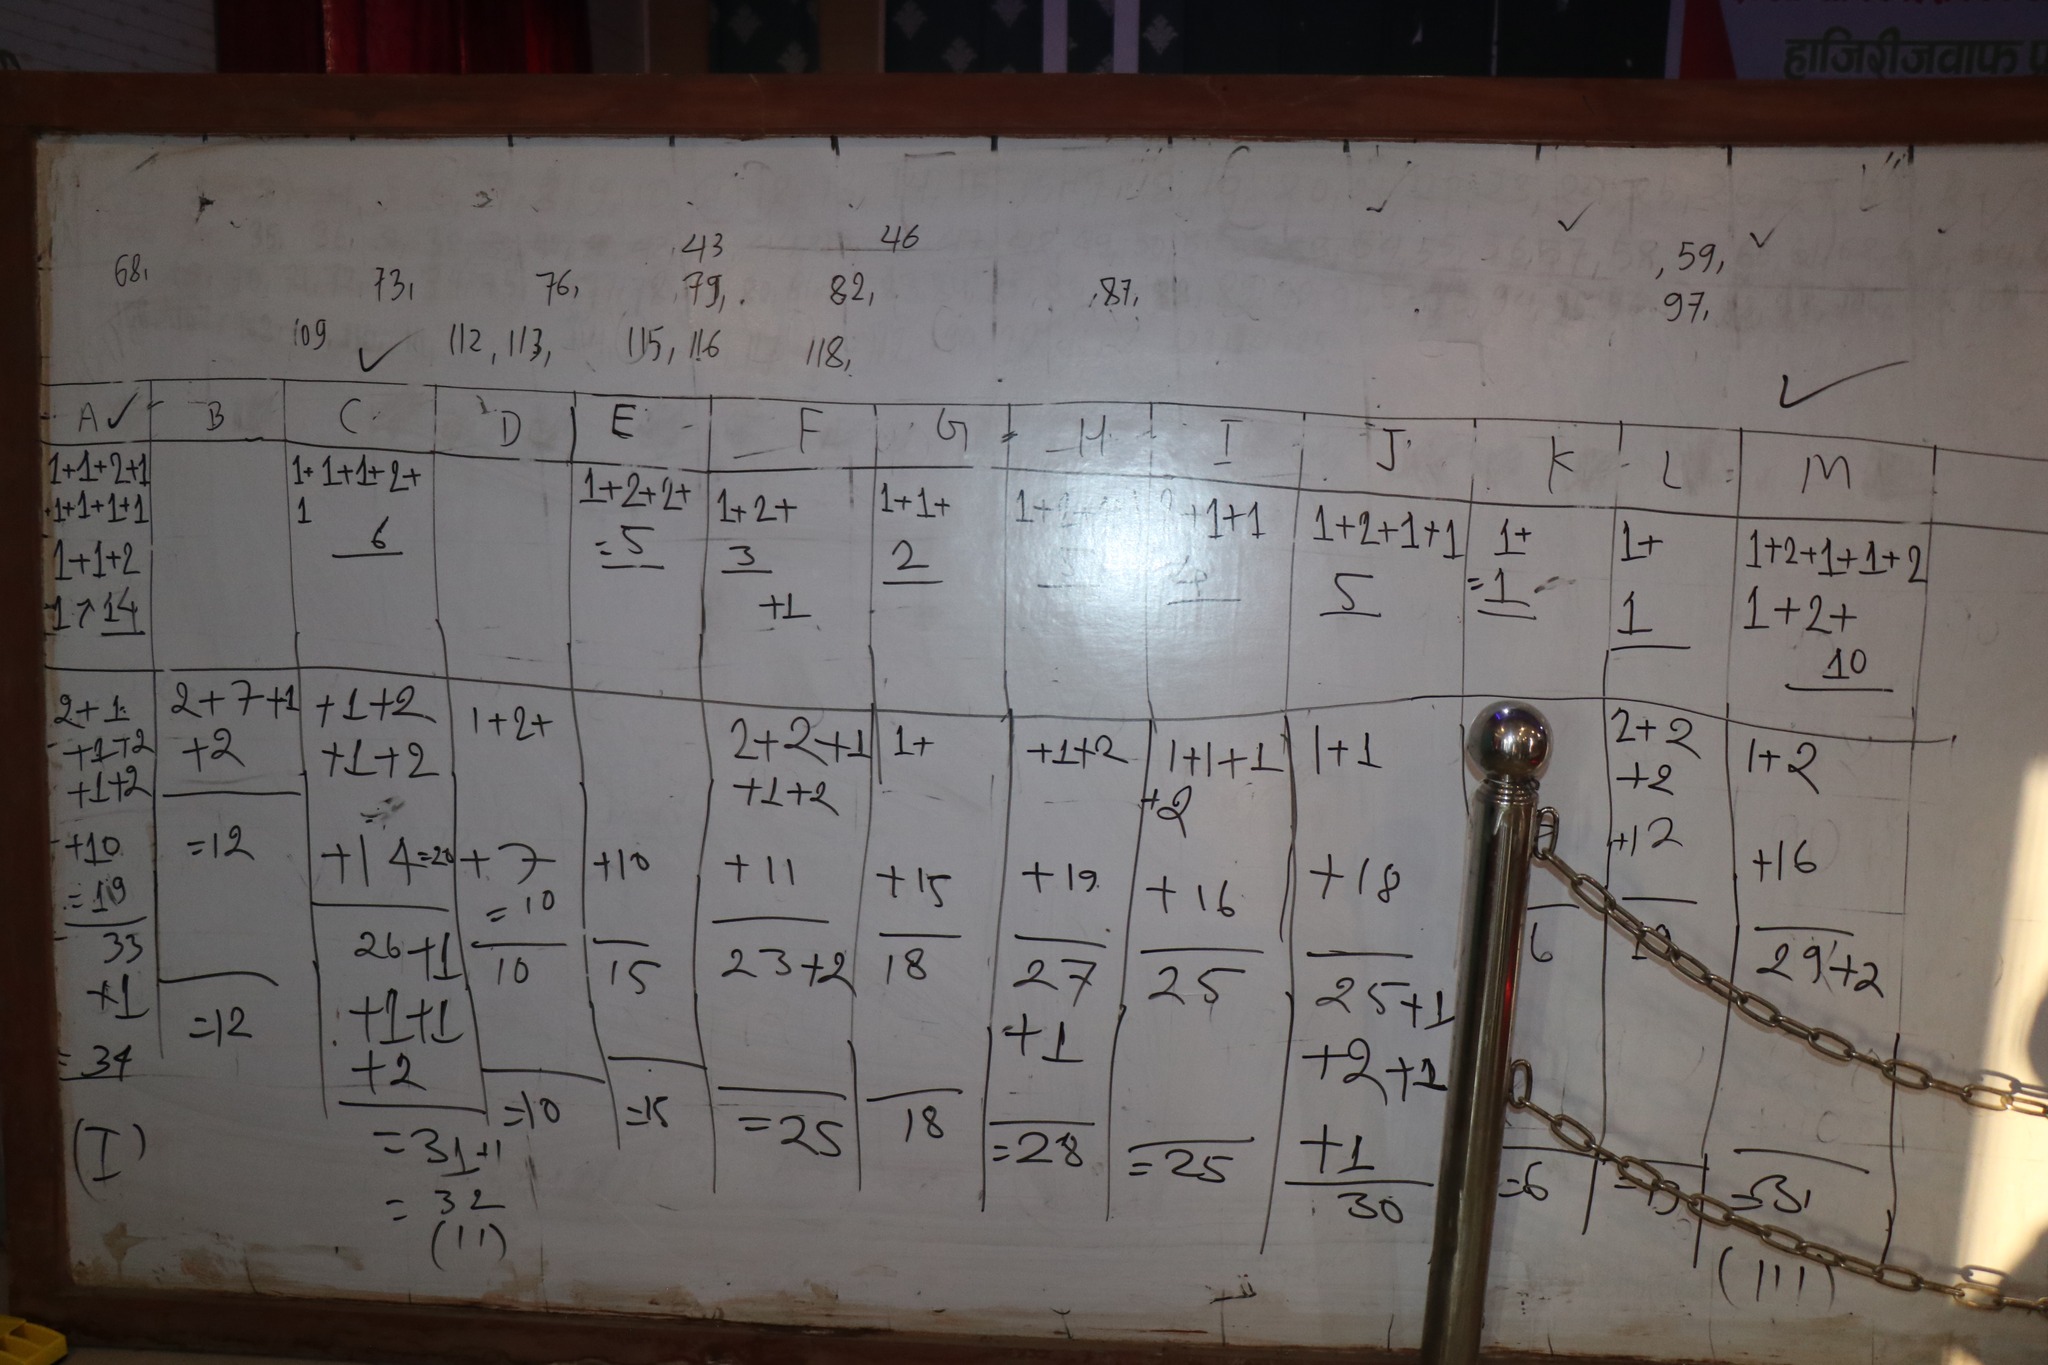 हाजिरीजवाफ
43 46 59,
68, 73, 76, 79, 82, 87, 97,
109 112, 113, 115, 116 118,
A B C D E F G H I J K L M
1+1+2+1 1+1+1+2+ 1+2+2+ 1+2+ 1+1+ +1+1 1+2+1+1 1+ 1+ 1+2+1+1+2
+1+1+1+1 1 6 =5 3 2 5 =1 1 1+2+
1+1+2 +1 10
14
2+1 2+7+1 +1+2 1+2+ 2+2+1 1+ +1+2 1+1+1 1+1 2+2 1+2
+1+2 +2 +1+2 +1+2 +2 +2
+1+2
+10 =12 +14=20 +7 +10 +11 +15 +19 +16 +18 +12 +16
=19 =10
33 26+1 10 15 23+2 18 27 25 25+1 6 29+2
+1 =12 +1+1 +1 +2+1
=34 +2 =10 =15 =25 18 =28 =25 +1 =6 =31
(I) =31+1 30 (III)
=32
(II)